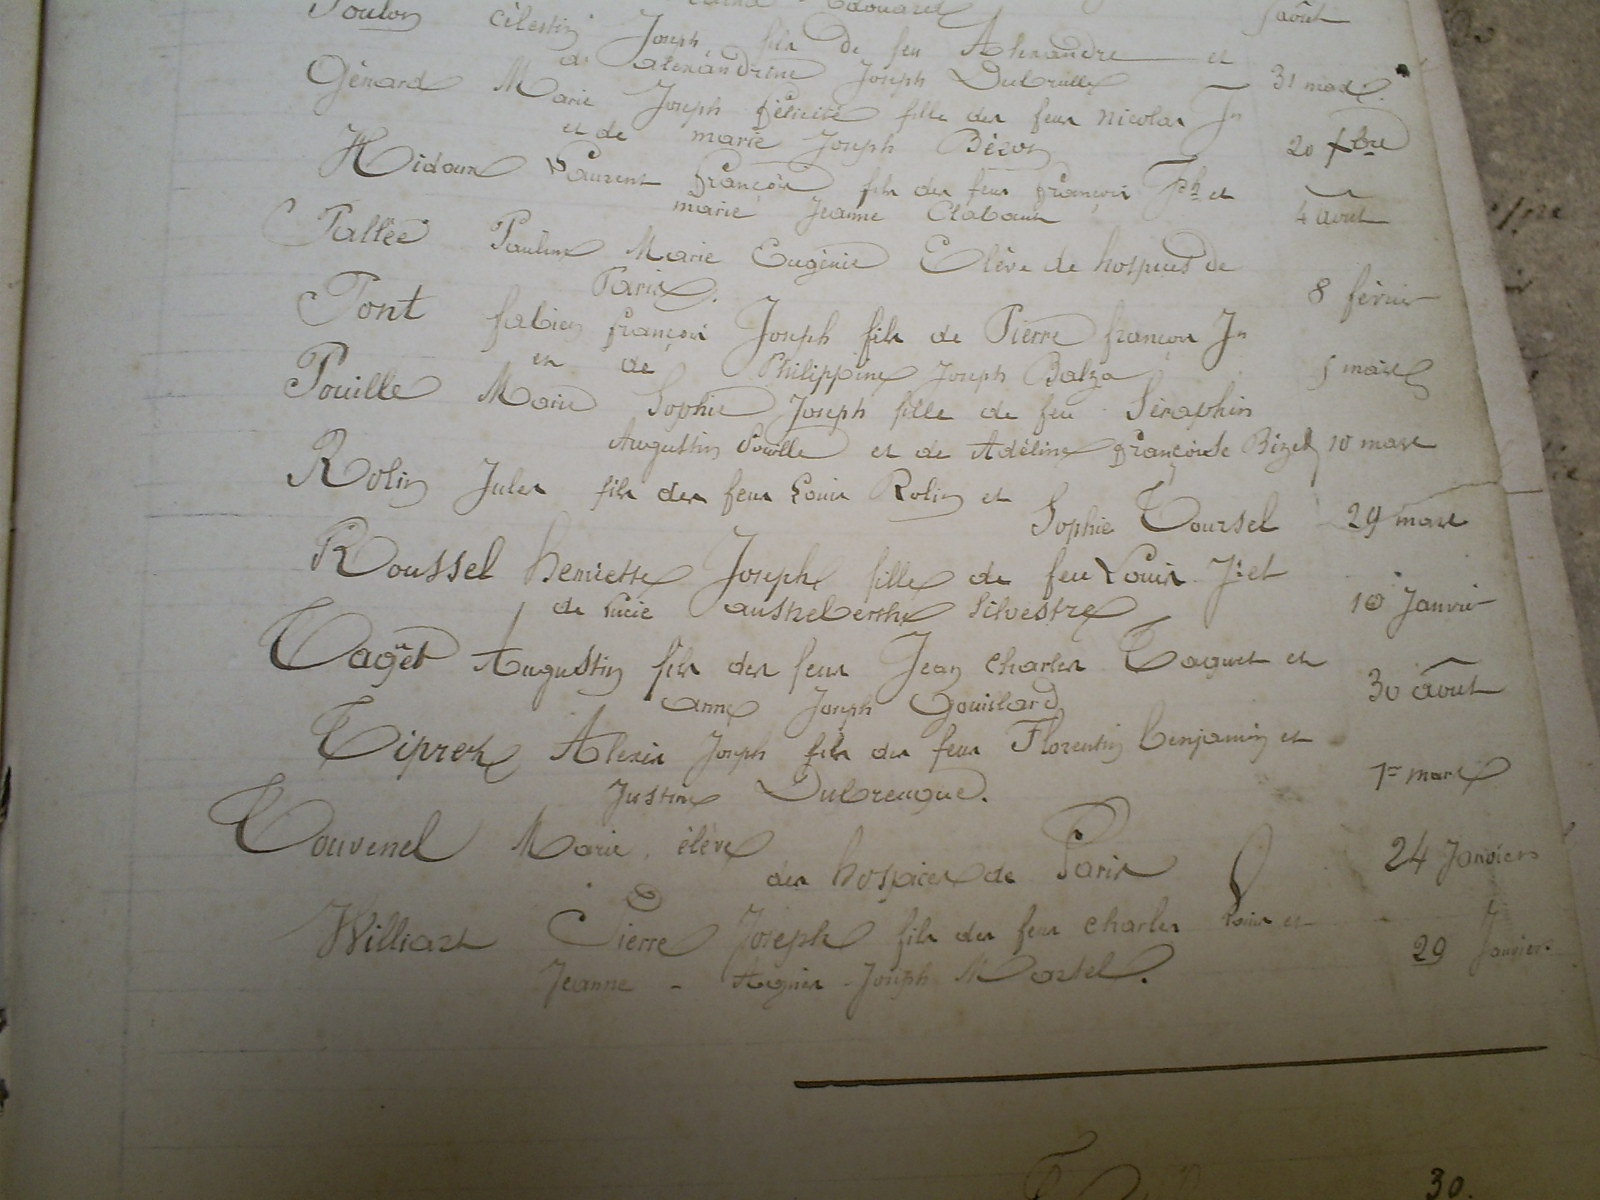 Edouard 5 août
Poulon Célestin Joseph fils de feu Alexandre et
de alexandrine Joseph Dubrulle 31 mars.
Gérard Marie Joseph félicité fille des feus Nicolas Jh
et de marie Joseph Bézon 20 7bre
Hidoux Laurent françois fils des feus françois Jph et
marie Jeanne Clabaux 4 aout
Pallée Pauline Marie Eugénie Elève de hospices de
Paris. 8 février
Pont fabien françois Joseph fils de Pierre françois Jh
et de Philippine Joseph Balza 5 mars
Pouille Marie Sophie Joseph fille de feu Séraphin
Augustin Pouille et de Adéline françoise Bizet 10 mars
Rolin Jules fils des feus Louis Rolin et
Sophie Toursel 29 mars
Roussel henriette Joseph fille de feu Louis Jh et
de Lucie austreberthe Silvestre 10 Janvier
Taquet Augustin fils des feus Jean Charles Taquet et
anne Joseph Gouillard 30 août
Tiprez Alexis Joseph fils des feus Florentin benjamin et
Justine Dubreucque. 1er mars
Touvenel Marie élève
des hospices de Paris 24 Janvier
Williart Pierre Joseph fils des feus charles Louis et
Jeanne - Agnès - Joseph Martel. 29 Janvier
30